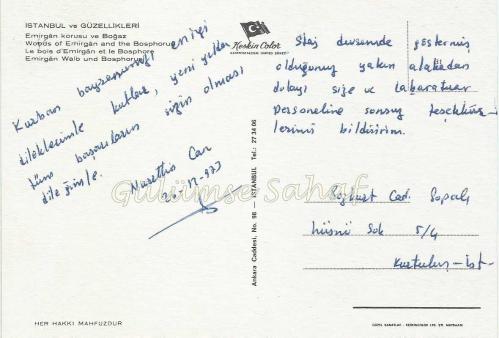 İSTANBUL ve GÜZELLİKLERİ
Emirgân korusu ve Boğaz
Woods of Emirgân and the Bosphorus
Le bois d'Emirgân et le Bosphore
Emirgân Walb und Bosphorus
Keskin Color
Kurban bayramınızı en iyi
dileklerimle kutlar, yeni yılda
tüm başarıların sizin olması
dileğimle.
Nurettin Can
Staj devresinde göstermiş
olduğunuz yakın alakadan
dolayı size ve Laboratuar
Personeline sonsuz teşekkür-
lerimi bildiririm.
Bozkurt Cad. Sapaklı
hüsnü Sok 5/4
Kurtuluş-İst-
Ankara Caddesi, No. 98 — İSTANBUL Tel.: 27 34 06
Gülümse Sahaf
HER HAKKI MAHFUZDUR